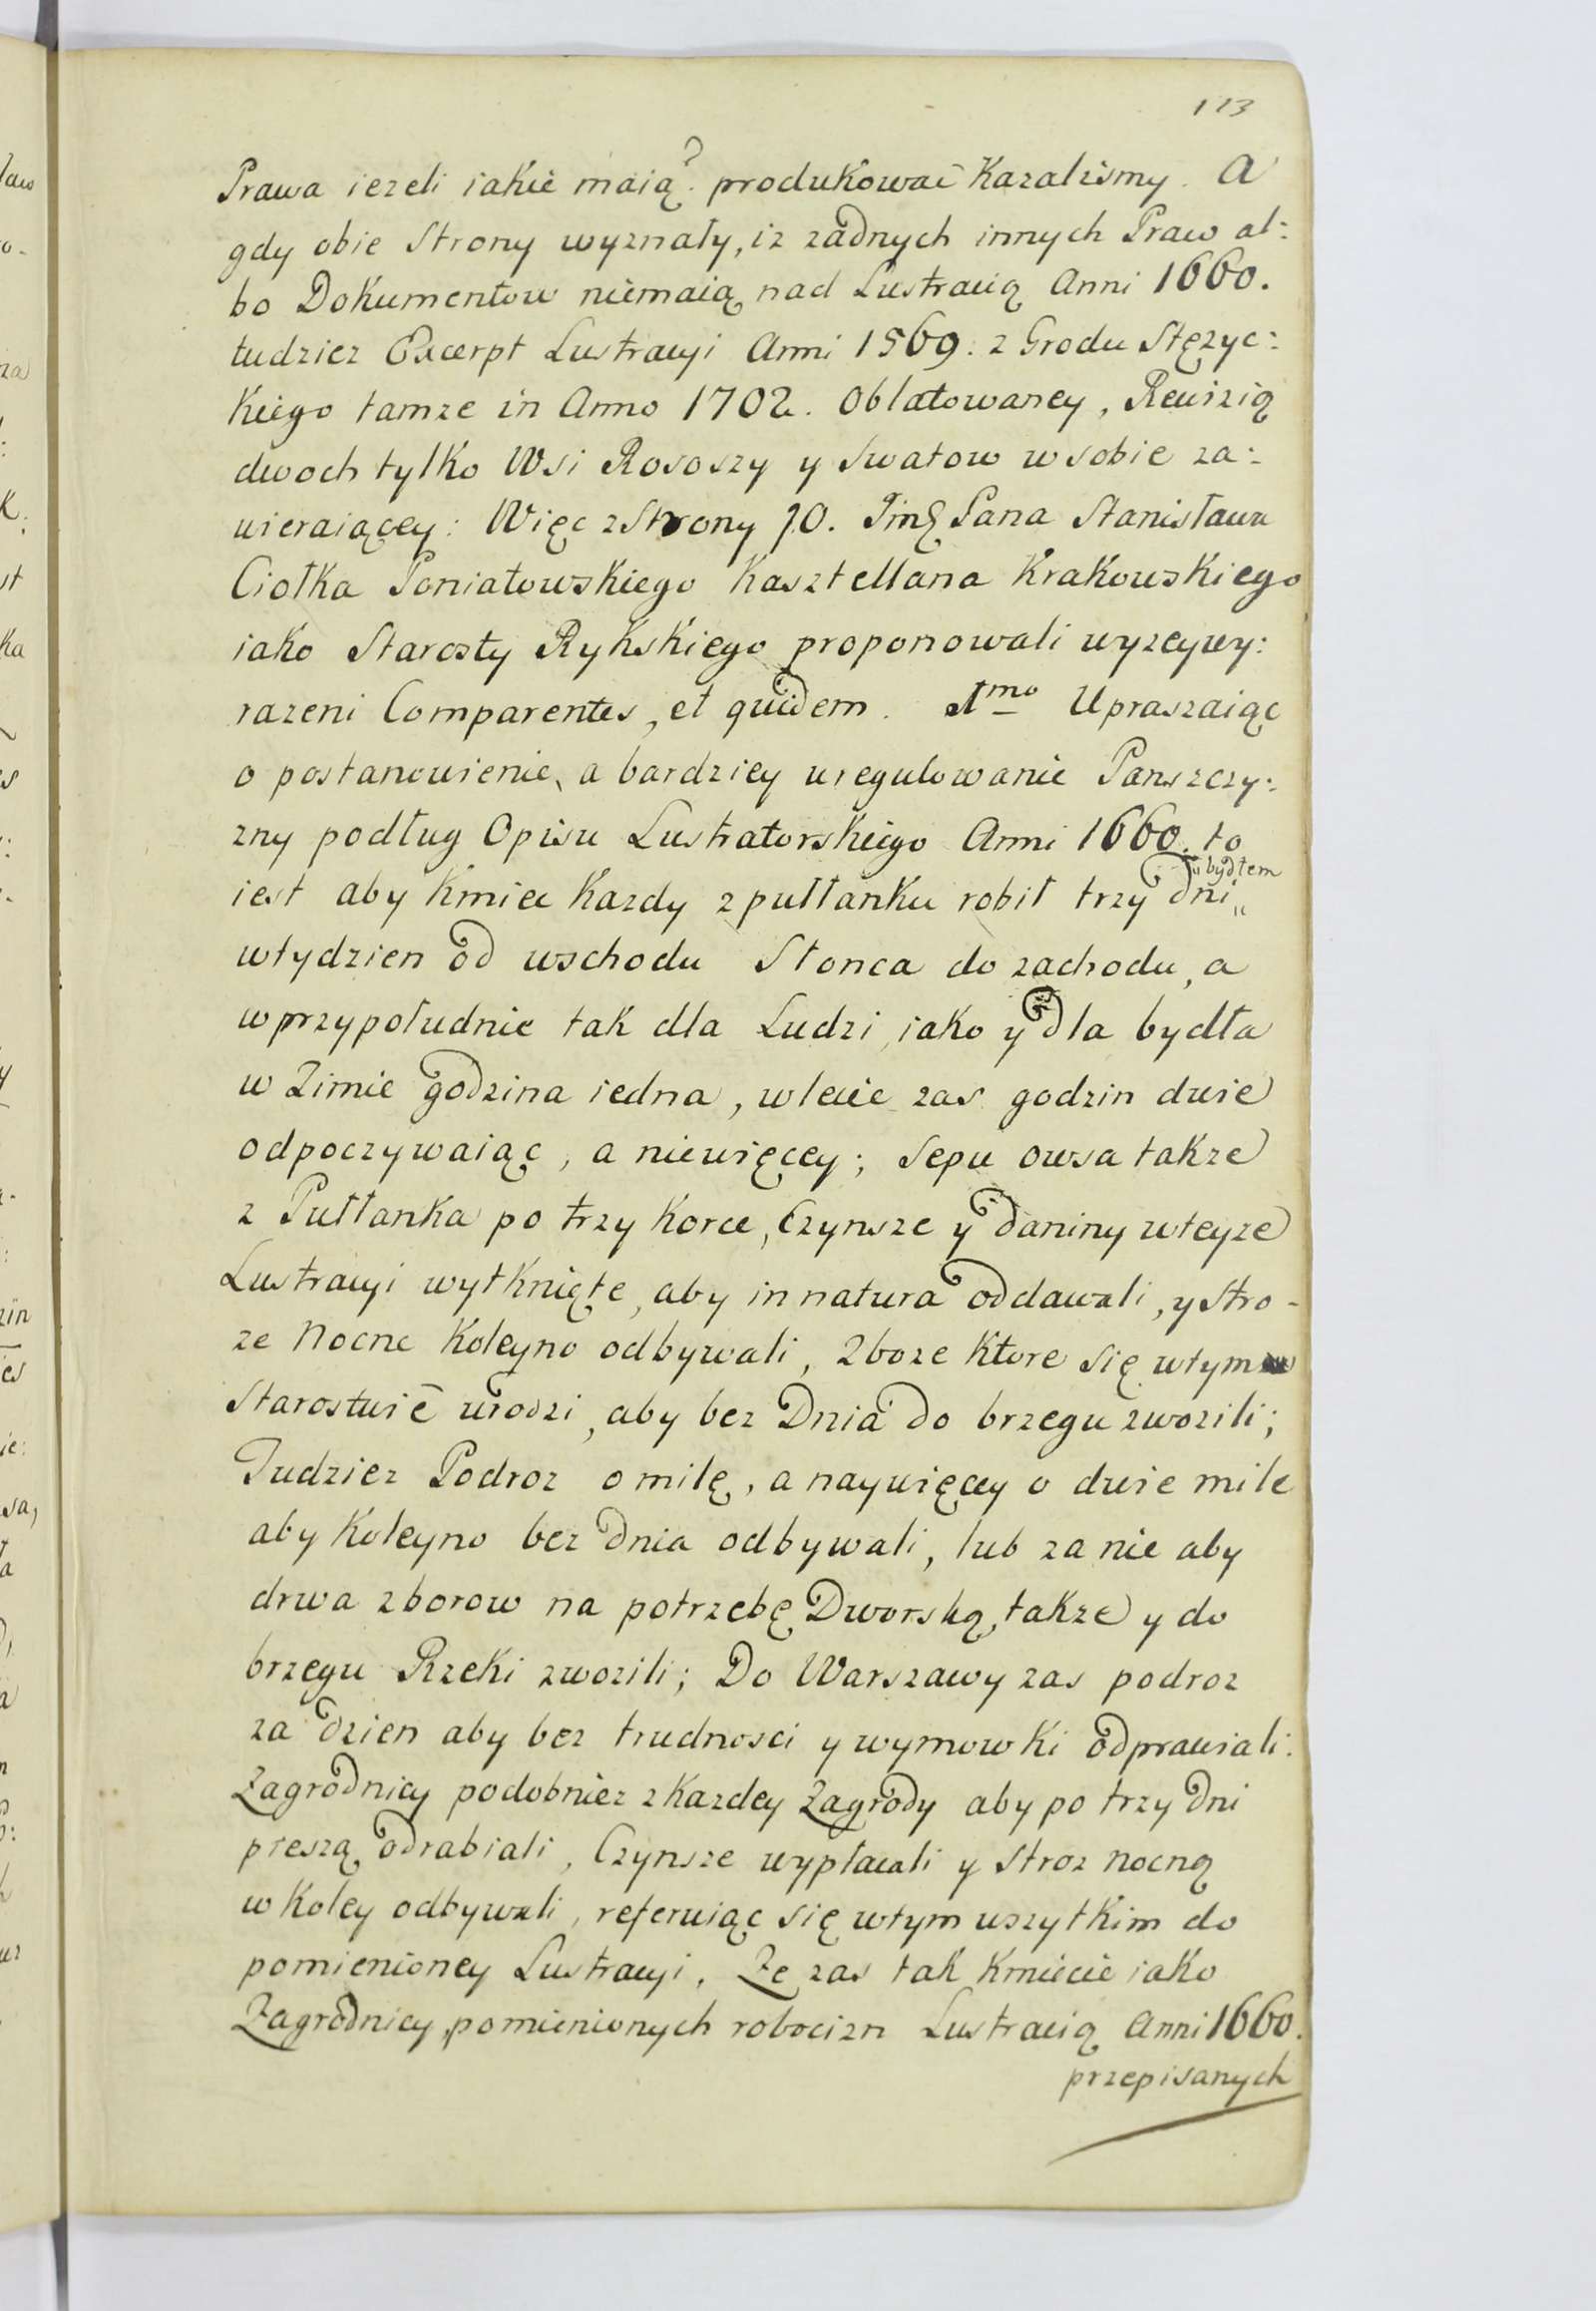 113
Prawa iezeli iakie maią? produkować Kazalismy. A
gdy obie Strony wyznały, iz zadnych innych Praw al:
bo Dokumentow niemaią nad Lustracią Anni 1660.
tudziez Excerpt Lustracyi Anni 1569. z Grodu Stęzyc:
kiego tamze in Anno 1702. Oblatowaney, Rewizią
dwoch tylko Wsi Rososzy y Swatow w sobie za:
wieraiącey: Więc z Strony JO. Jmę Pana Stanisława
Ciołka Poniatowskiego Kasztellana Krakowskiego
iako Starosty Rykskiego proponowali wyzeywy:
razeni Comparentes, et quidem. 1mo Upraszaiąc
o postanowienie, a bardziey uregulowanie Panszczy:
zny podług Opisu Lustratorskiego Anni 1660. to
bydłem
iest aby Kmiec Kazdy z pułłanku robił trzy dni„
wtydzien od wschodu Słonca do zachodu, a
w przypołudnie tak dla Ludzi, iako y dla bydła
w Zimie godzina iedna, wlecie zas godzin dwie
odpoczywaiąc, a niewięcey; Sepu owsa takze
z Pułłanka po trzy Korce, Czynsze y daniny wteyze
Lustracyi wytknięte, aby in natura oddawali, y Stro-
ze Nocne Koleyno odbywali, Zboze Ktore się wtym
Starostwie urodzi, aby bez Dnia do brzegu zwozili;
Tudziez Podroz o milę, a naywięcey o dwie mile
aby Koleyno bez dnia odbywali, lub za nie aby
drwa zborow na potrzebę Dworską, takze y do
brzegu Rzeki zwozili; Do Warszawy zas podroz
za dzien aby bez trudnosci y wymowki odprawiali.
Zagrodnicy podobniez z Kazdey Zagrody aby po trzy dni
pieszą odrabiali, Czynsze wypłacali y Stroz nocną
w Koley odbywali, referuiąc się wtym wszytkim do
pomienioney Lustracyi. Ze zas tak Kmiecie iako
Zagrodnicy, pomienionych robocizn Lustracią Anni 1660.
przepisanych